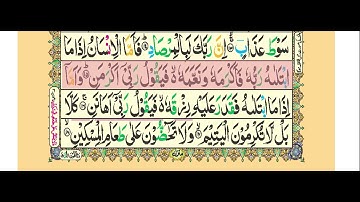 سَوْطَ عَذَابٍ ۙ اِنَّ رَبَّكَ لَبِالْمِرْصَادِ ؕ فَاَمَّا الْاِنْسَانُ اِذَا مَا
ابْتَلٰىهُ رَبُّهٗ فَاَكْرَمَهٗ وَنَعَّمَهٗ ۙ فَيَقُوْلُ رَبِّيْۤ اَكْرَمَنِ ؕ وَاَمَّاۤ
اِذَا مَا ابْتَلٰىهُ فَقَدَرَ عَلَيْهِ رِزْقَهٗ ۙ فَيَقُوْلُ رَبِّيْۤ اَهَانَنِ ۚ كَلَّا
بَلْ لَّا تُكْرِمُوْنَ الْيَتِيْمَ ۙ وَلَا تَحٰٓضُّوْنَ عَلٰى طَعَامِ الْمِسْكِيْنِ ۙ